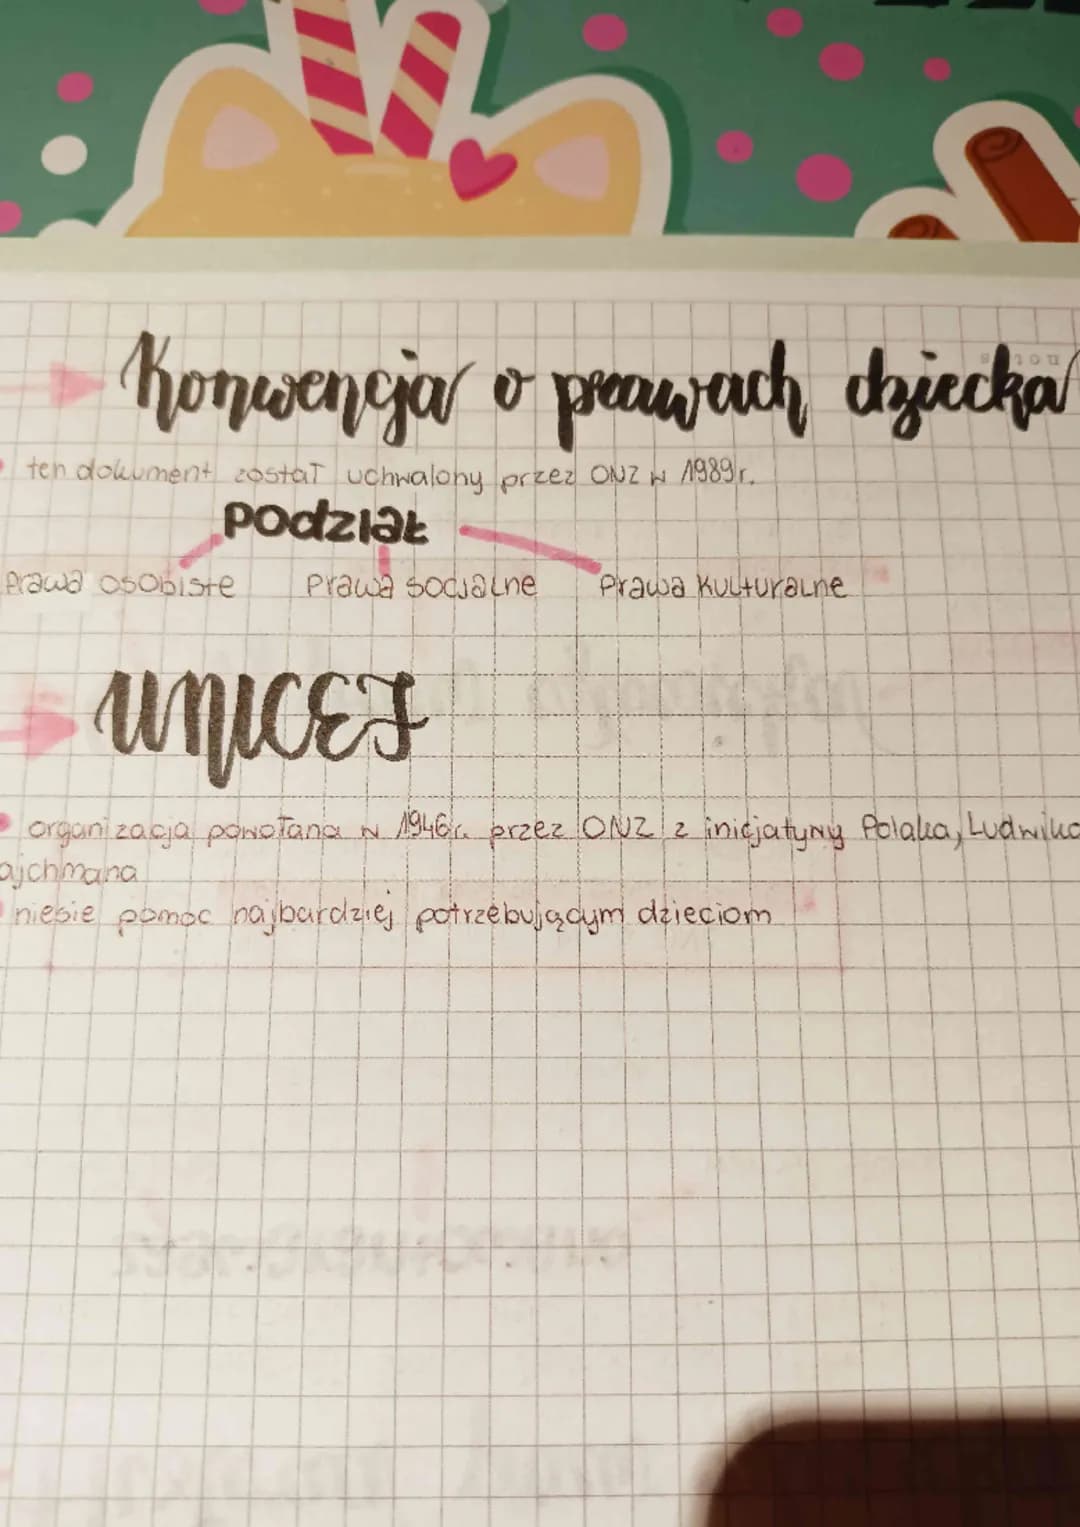 Konwencja o prawach dziecka
ten dokument został uchwalony przez ONZ w 1989r.
podział
prawa osobiste prawa socjalne prawa kulturalne
UNICEF
organizacja powołana w 1946r. przez ONZ z inicjatywy Polaka, Ludwika
ajchmana
niesie pomoc najbardziej potrzebującym dzieciom